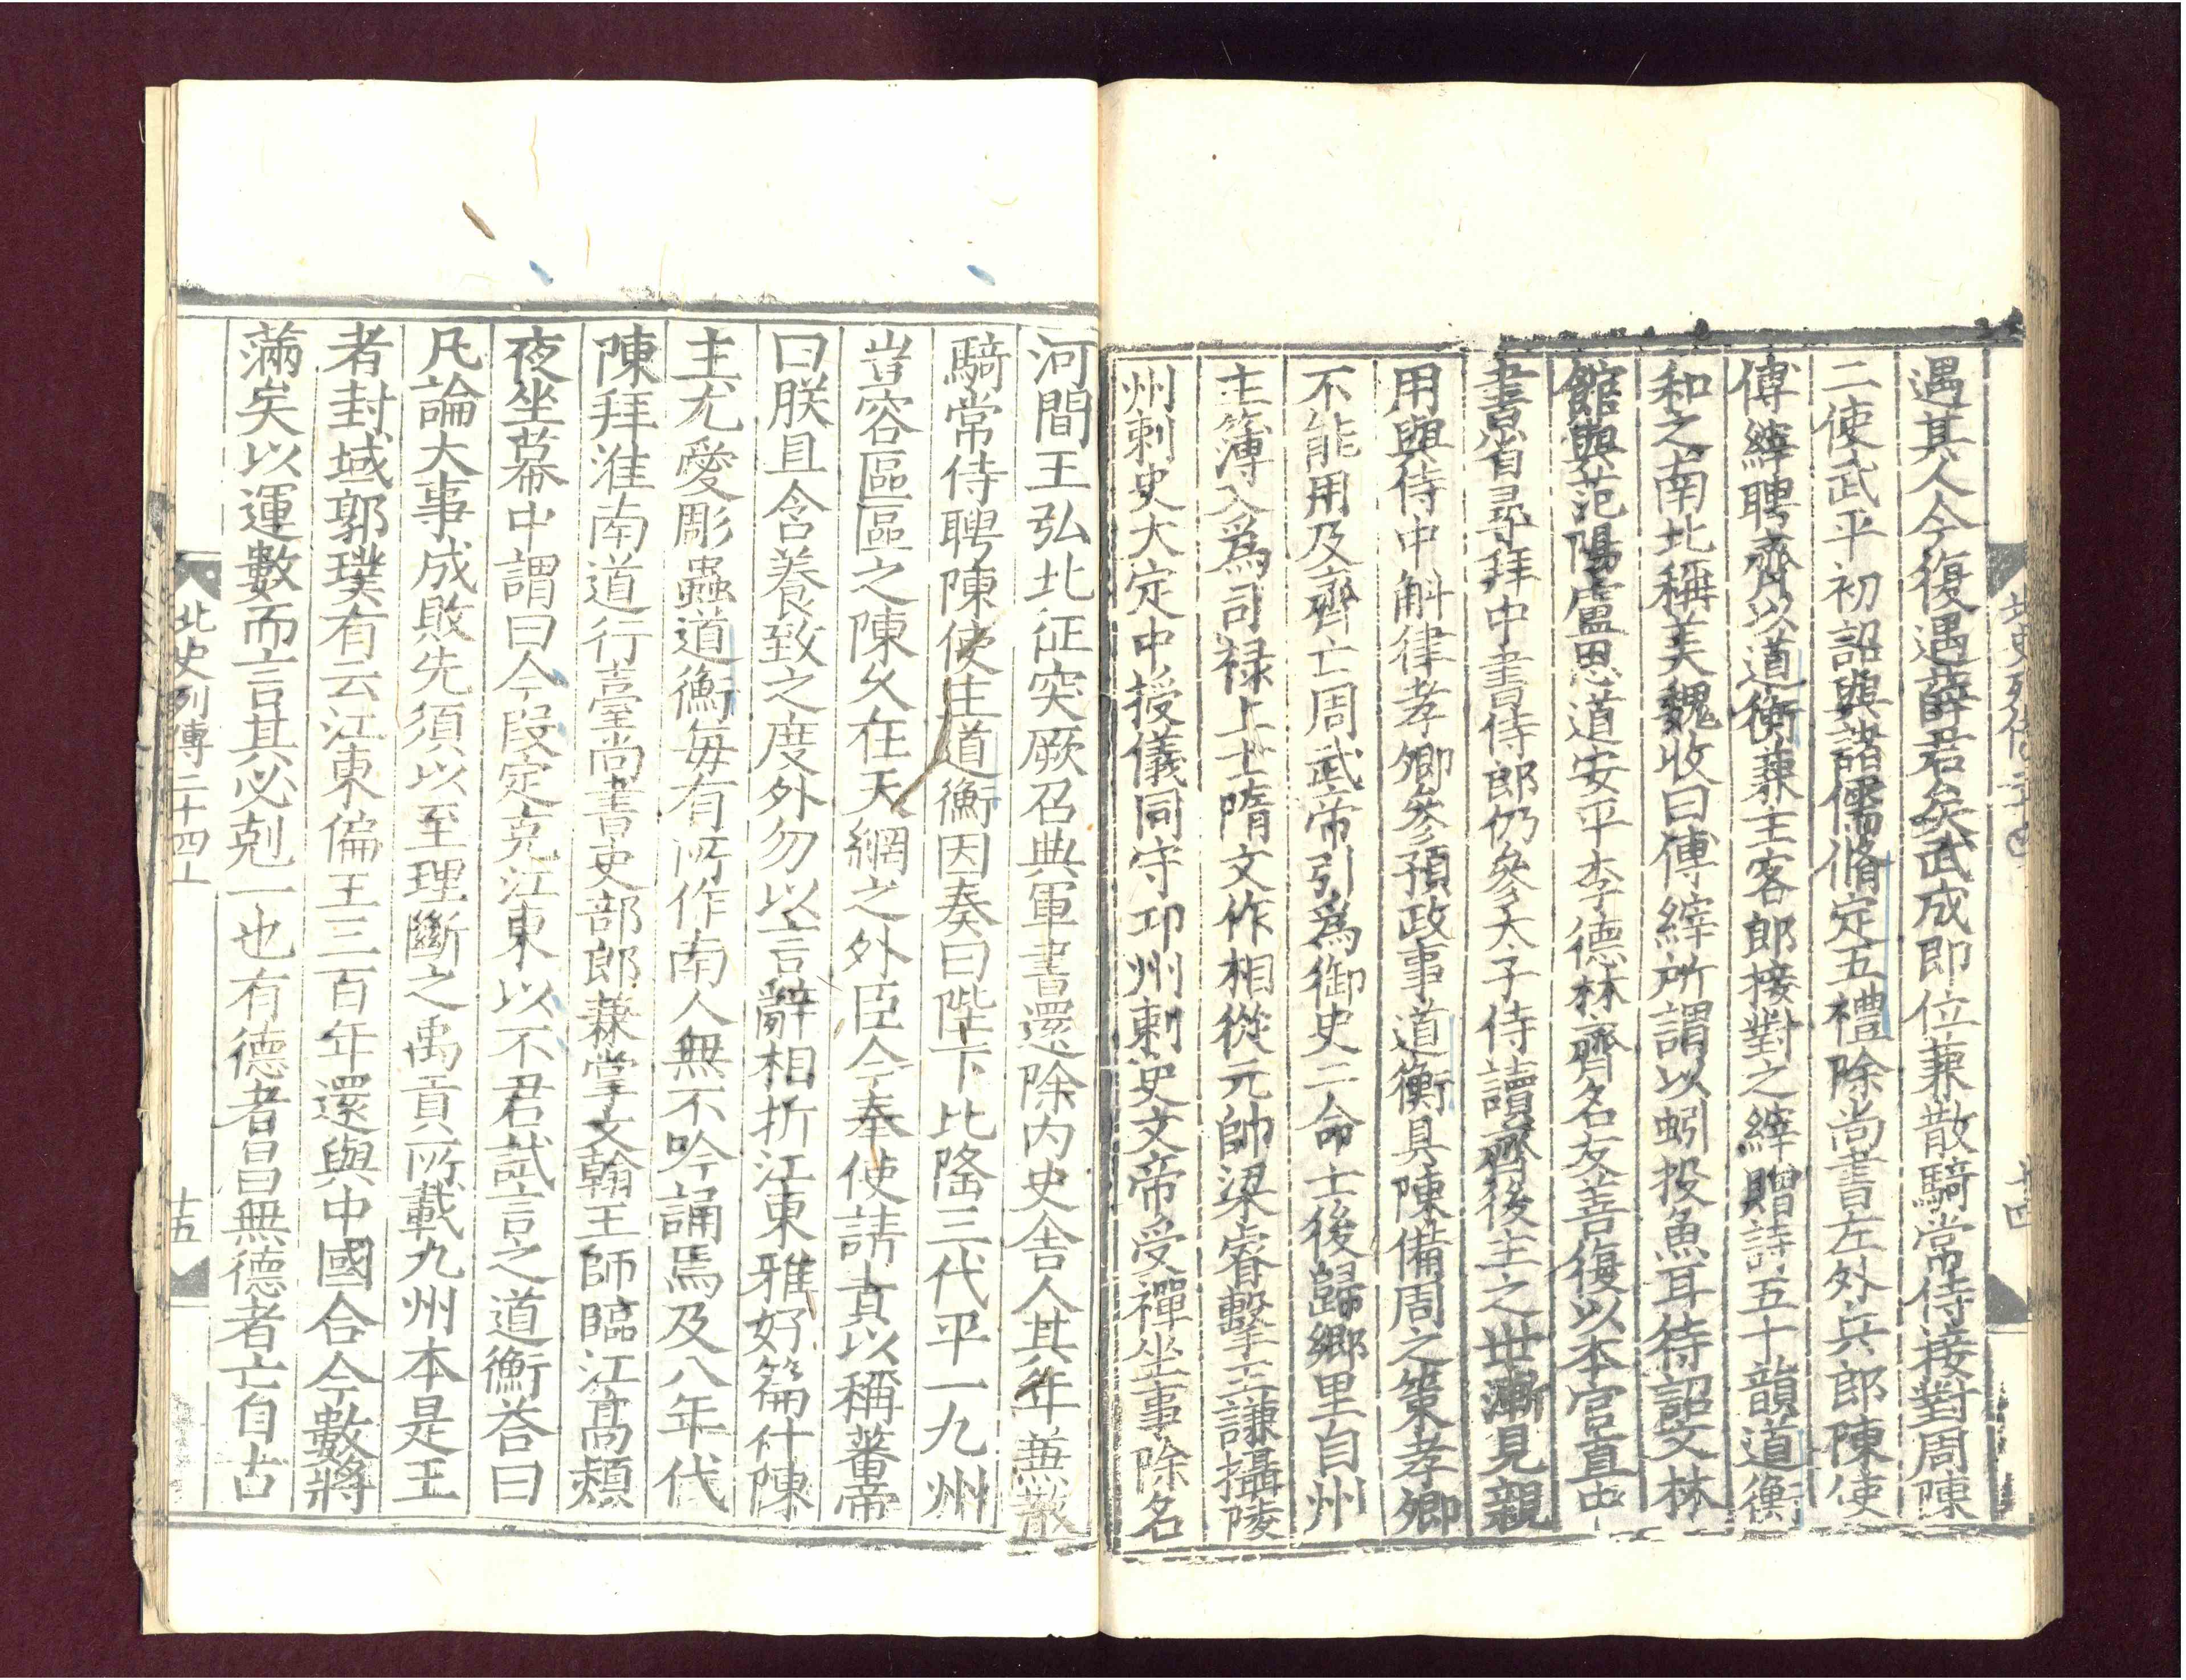 北史列傳二十四
十四
遇其人今復遇薛君矣武成即位蒹散騎常侍接對周陳
二使武平初詔與諸儒脩定五禮除尚書左外兵郎陳使
傅縡聘齊以道衡蒹主客郎接對之縡贈詩五十韻道衡
和之南北稱美魏收曰傅縡所謂以蚓投魚耳待詔文林
館與范陽盧思道安平李德林齊名友善復以本官直中
書省尋拜中書侍郎仍參太子侍讀齊後主之世漸見親
用與侍中斛律孝卿參預政事道衡具陳備周之策孝卿
不能用及齊亡周武帝引爲御史二命士後歸郷里自州
主簿入爲司禄上士隋文作相從元帥梁睿擊王謙攝陵
州刺史大定中授儀同守邛州刺史文帝受禪坐事除名
河間王弘北征突厥召典軍書還除内史舍人其年蒹散
騎常侍聘陳使主道衡因奏曰陛下比隆三代平一九州
豈容區區之陳久在天網之外臣今奉使請責以稱蕃帝
曰朕且含養致之度外勿以言辭相折江東雅好篇什陳
主尤愛彫蟲道衡每有所作南人無不吟誦焉及八年代
陳拜淮南道行臺尚書吏部郎蒹掌文翰王師臨江髙熲
夜坐幕中謂曰今段定克江東以不君試言之道衡荅曰
凡論大事成敗先須以至理斷之禹貢所載九州本是王
者封域郭璞有云江東偏王三百年還與中國合今數將
滿矣以運數而言其必剋一也有德者昌無德者亡自古
北史列傳二十四上
十五